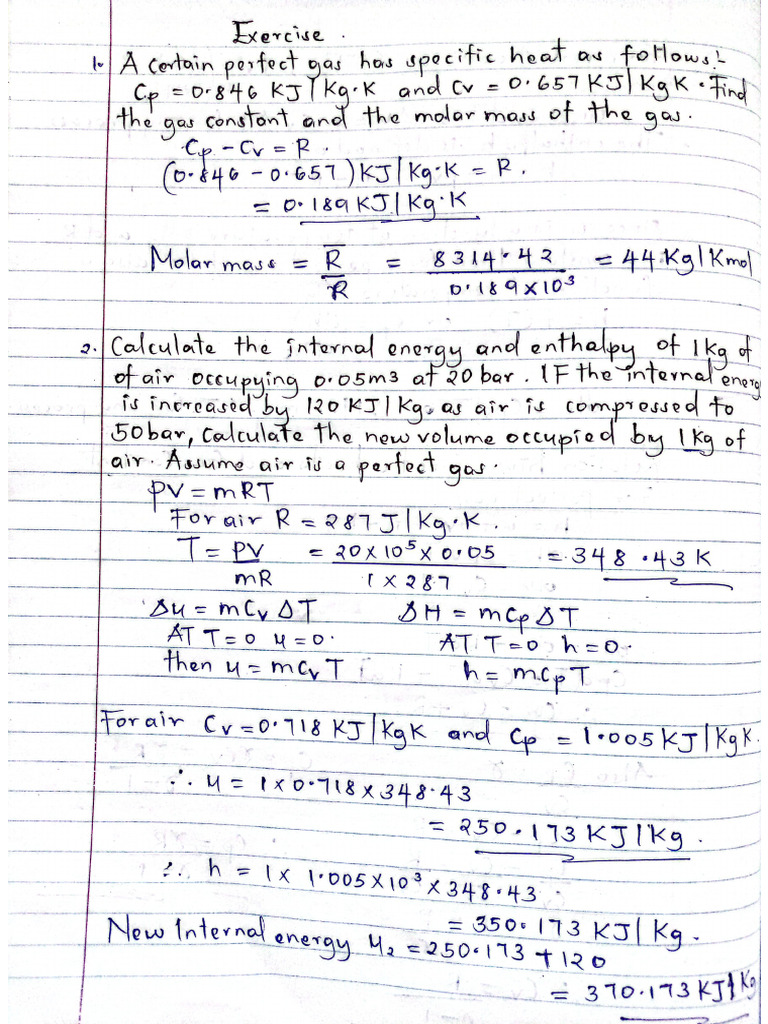 Exercise.
1. A certain perfect gas has specific heat as follows:-
Cp = 0.846 KJ/Kg.K and Cv = 0.657 KJ/KgK. Find
the gas constant and the molar mass of the gas.
Cp - Cv = R.
(0.846 - 0.657) KJ/Kg.K = R.
= 0.189 KJ/Kg.K
Molar mass = R̅/R = 8314.42/0.189x10³ = 44 Kg/Kmol
2. Calculate the internal energy and enthalpy of 1kg of
of air occupying 0.05m3 at 20 bar. IF the internal energ
is increased by 120 KJ/Kg, as air is compressed to
50bar, calculate the new volume occupied by 1Kg of
air. Assume air is a perfect gas.
PV = mRT
For air R = 287 J/Kg.K.
T = PV/mR = 20x10⁵x0.05/1x287 = 348.43 K
Δu = mCvΔT ΔH = mCpΔT
AT T=0 u=0. AT T=0 h=0.
then u = mCvT h = mCpT
For air Cv = 0.718 KJ/KgK and Cp = 1.005 KJ/KgK.
∴ u = 1x0.718x348.43
= 250.173 KJ/Kg.
∴ h = 1x 1.005x10³x348.43
= 350.173 KJ/Kg.
New Internal energy u₂ = 250.173 + 120
= 370.173 KJ/Kg